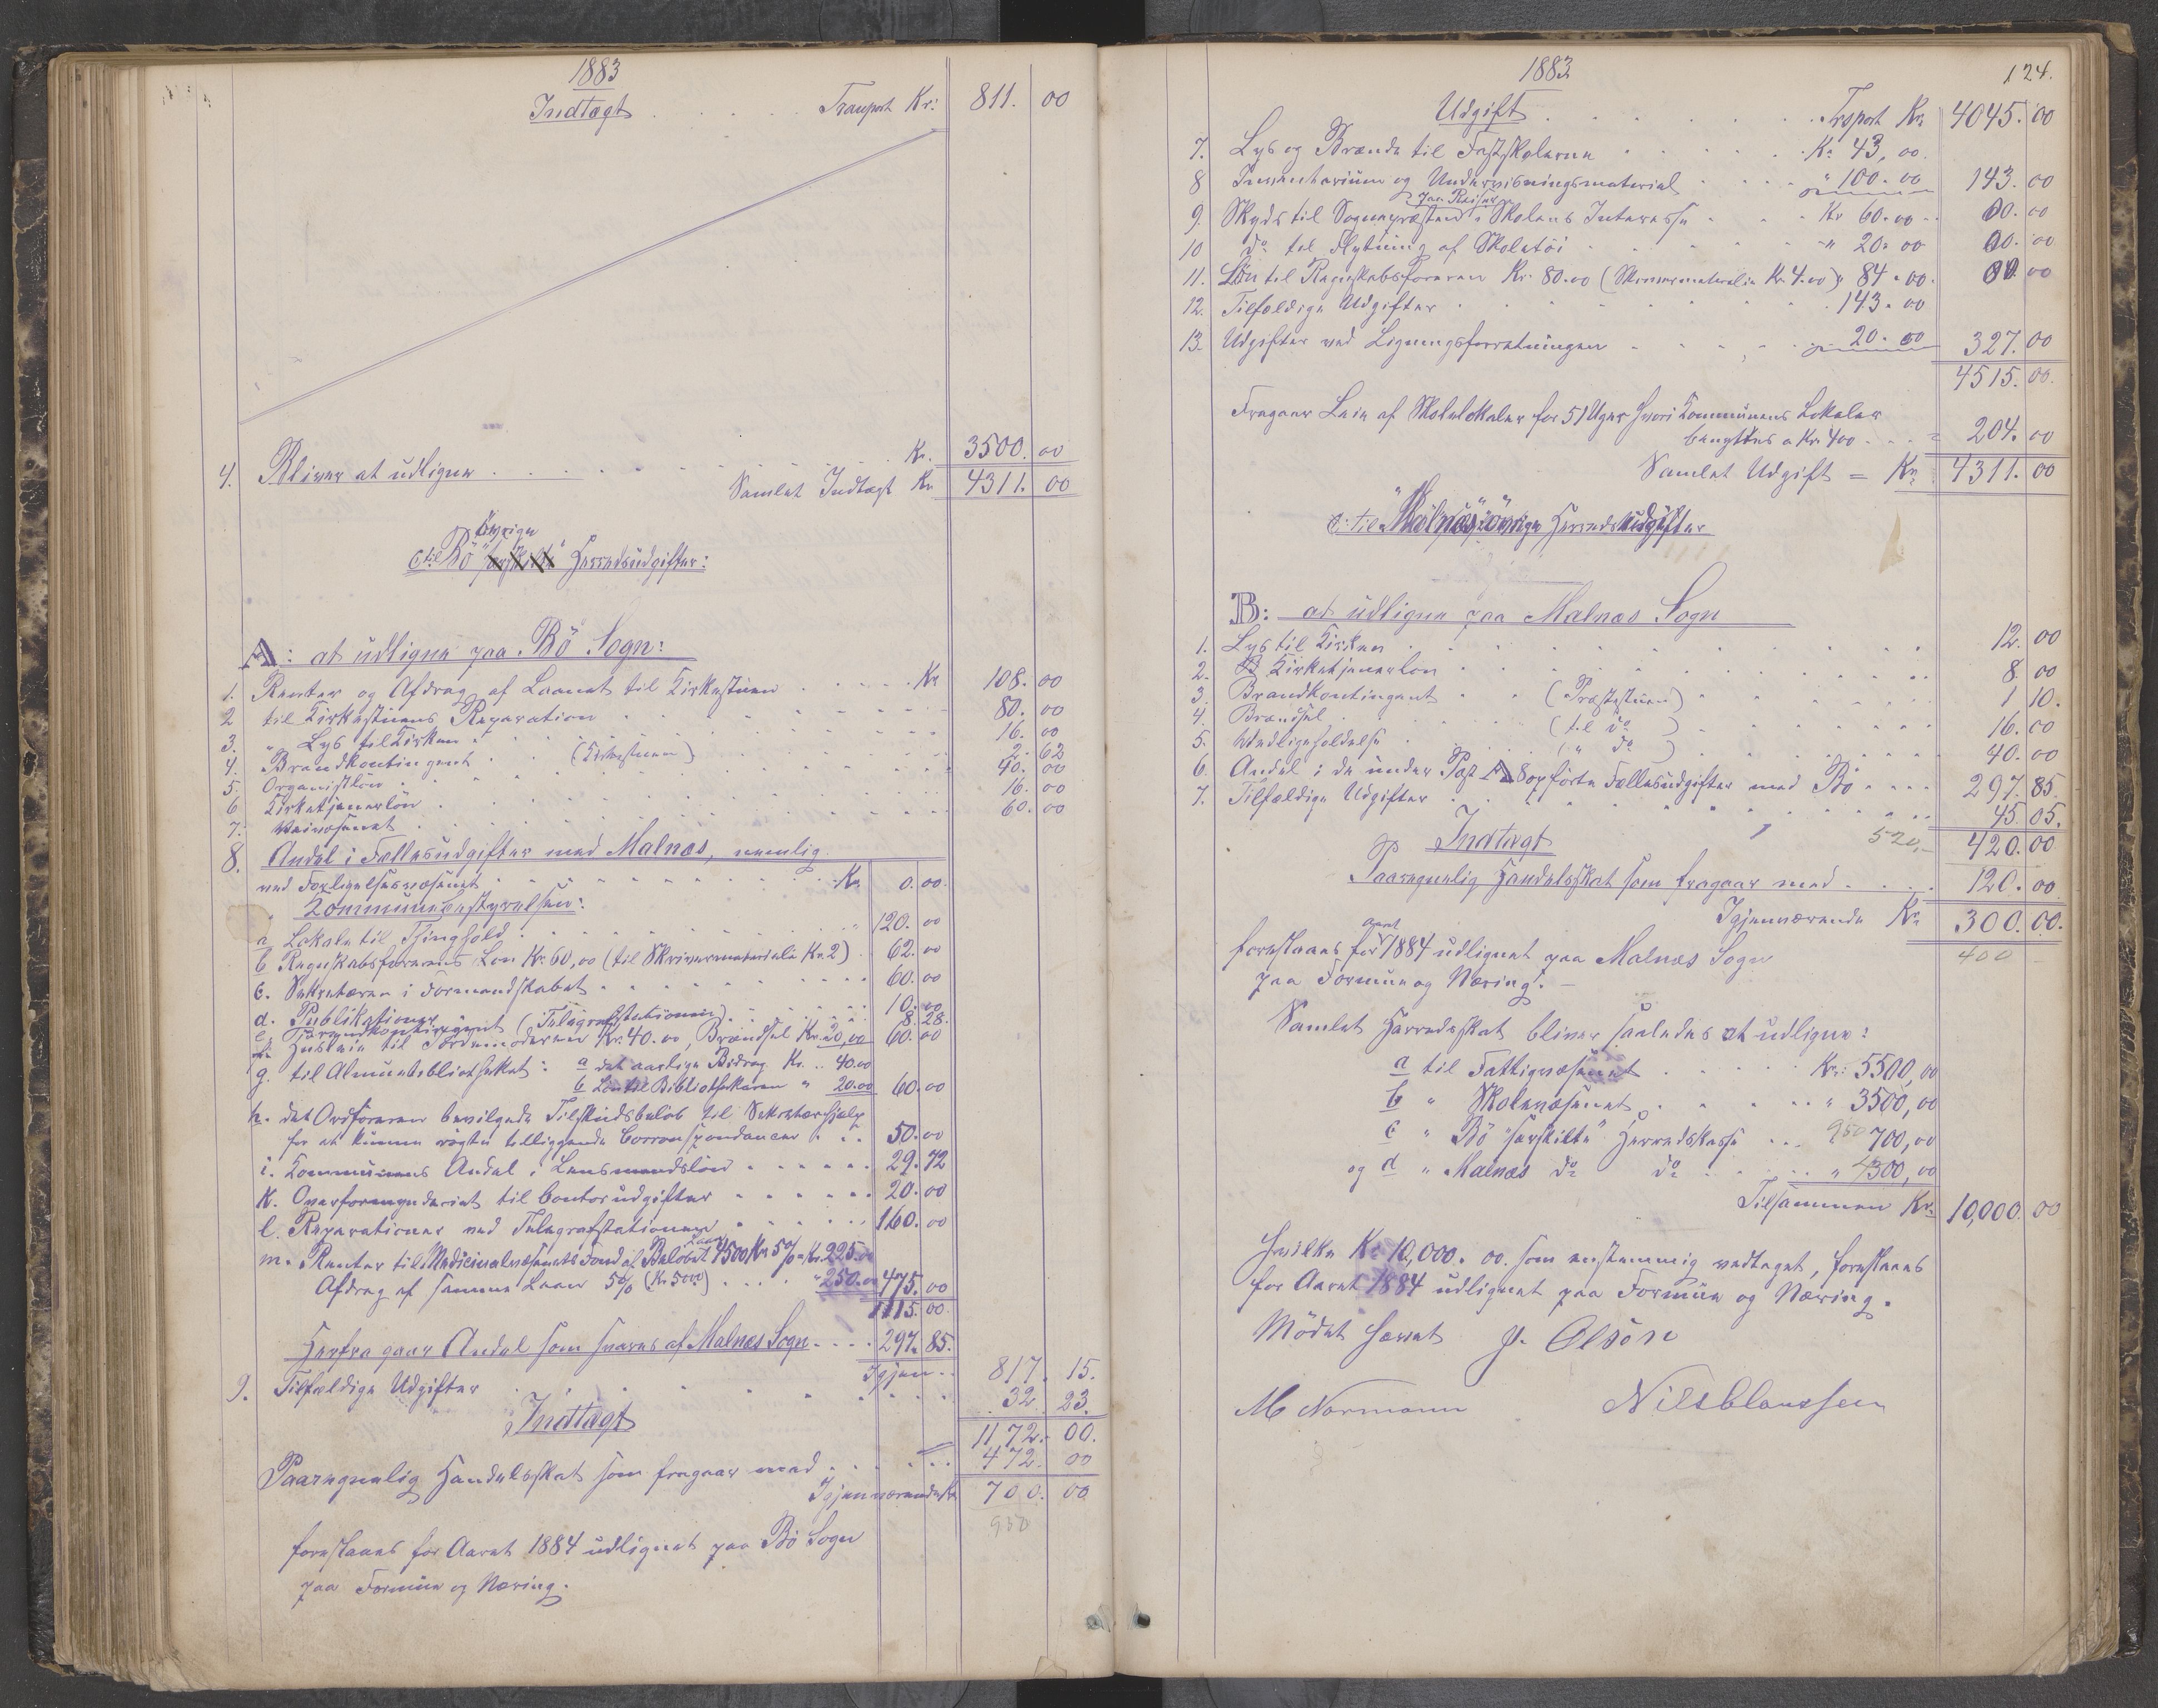 1883
Indtægt . . . . . Transport Kr: 811. 00
4. Bliver at udligne . . . . . Kr. 3500. 00
Samlet Indtægt Kr 4311. 00
øvrige
c til Bö Herredsudgifter:
A: at udligne paa Bö Sogn:
1. Renter og Afdrag af Laanet til Kirkestuen . . . . Kr 108. 00
2 til Kirkestuens Reparation . . . . 80. 00
3. " Lys til Kirken . . . . 16. 00
4. Brandkontingent . . (Kirkestuen) 2. 62
5. Organistlön . . . . 40. 00
6 Kirketjenerlön . . . . 16. 00
7. Veivæsenet . . . . 60. 00
8. Andel i Fællesudgifter med Malnæs, nemlig
ved Forligelsesvæsenet . . . . Kr. 0. 00
Kommunebestyrelsen:
a Lokale til Thinghold . . . . " 120. 00
b Regnskabsførerens Løn Kr. 60,00 (til Skrivermateriale Kr 2) . 62. 00
c. Sekretæren i Formandskabet . . . . 60. 00
d. Publikationer . . . . 10. 00
e. Brandkontingent (Telegrafstationen) . . . 8. 28.
f. Husleie til Jordemoderen Kr. 40.00, Brændsel Kr. 20,00 60. 00
g. til Almuebibliotheket: a det aarlige Bidrag Kr. .. 40.00
b Løn til Bibliothekaren " 20.00 60. 00
h. det Ordføreren bevilgede Tilskudsbeløb til Sekretærhjælp
for at kunne røgte tilliggende Correspondancer . . . 50. 00
i. Kommunens Andel i Lensmandslön . . . . 29. 72
k. Overformynderiet til Contorudgifter . . . . 20. 00
l. Reparationer ved Telegrafstationen . . . . 160. 00
Laan
m. Renter til Medicinalvæsenets Fond af Beløbet 4500 Kr 5% = Kr. 225.00
Afdrag af samme Laan 5% (Kr. 5000) . . . . " 250.00 475. 00
1115. 00.
Herfra gaar Andel som svares af Malnæs Sogn . . . . 297. 85.
Igjen . . 817. 15.
9. Tilfældige Udgifter . . . . 32. 23.
Indtægt 1172. 00.
Paaregnelig Handelsskat som fragaar med . . . . 472. 00
Igjenværende Kr 700. 00
950
foreslaaes for Aaret 1884 udlignet paa Bö Sogn
paa Formue og Næring.
1883. 124.
Udgift . . . . . Trsport Kr 4045. 00
7. Lys og Brænde til Fastskolerne . . . . Kr 43, 00.
8 Inventarium og Undervisningsmateriel . . . " 100. 00 143. 00
paa Reiser
9. Skyds til Sognepræsten i Skolens Interesse . . . Kr 60. 00 . . 00. 00
10 do til Flytning af Skoletöi . . . . " 20. 00 00. 00
11. Lön til Regnskabsføreren Kr. 80.00 (Skrivermateriale Kr. 4.00) " 84. 00. 00. 00
12. Tilfældige Udgifter . . . . 143. 00
13. Udgifter ved Ligningsforretningen . . . . 20. 00 327. 00
4515. 00.
Fragaar Leie af Skolelokaler for 51 Uger hvori Kommunens Lokaler
benyttes a Kr. 400 . . . = 204. 00
Samlet Udgift = Kr. 4311. 00
d: til "Malnæs" øvrige Herredsudgifter
B: at udligne paa Malnæs Sogn
1. Lys til Kirken . . . . 12. 00
2. Kirketjenerlön . . . . 8. 00
3. Brandkontingent . . (Præstestuen) . . 1 10.
4. Brændsel . . . . (til do) . . 16. 00
5. Vedligeholdelse . . . (" do) . . 40. 00
6. Andel i de under Post A 8 opførte Fællesudgifter med Bö . . . . 297. 85.
7. Tilfældige Udgifter . . . . 45. 05.
Indtægt 520,- 420. 00
Paaregnelig Handelsskat som fragaar med . . . . 120. 00
Igjenværende Kr. 300. 00.
400
aaret
foreslaaes for 1884 udlignet paa Malnæs Sogn
paa Formue og Næring. –
Samlet Herredsskat bliver saaledes at udligne:
a til Fattigvæsenet . . . . Kr: 5500,00
b " Skolevæsenet . . . . " 3500,00
c " Bö "særskilte" Herredskasse . . . 950 700,00
og d " Malnæs do do . . . . " 300,00
Tilsammen Kr. 10,000. 00
Hvilke Kr 10,000. 00. som enstemmig vedtaget, foreslaaes
for Aaret 1884 udlignet paa Formue og Næring.
Mödet hævet J. Olsön
M Normann Nils Claussen